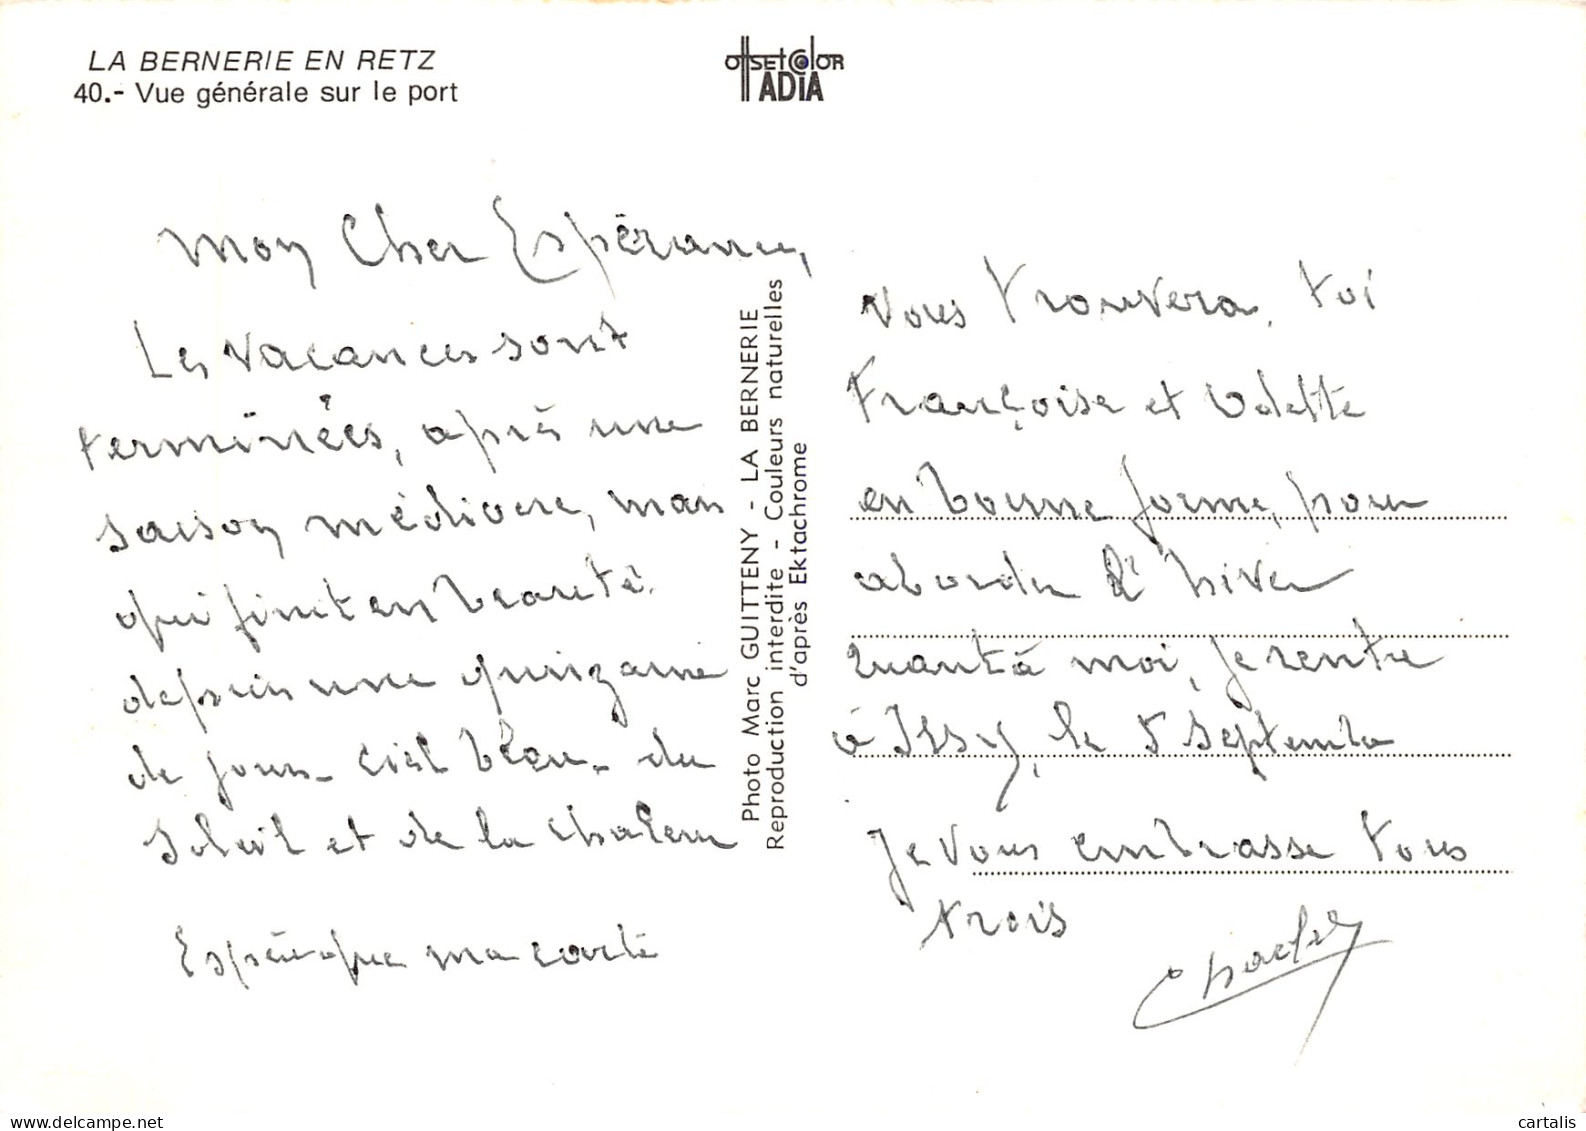 LA BERNERIE EN RETZ
40.- Vue générale sur le port
OffSETCOLOR
ADIA
Mon Cher Espérance,
Les vacances sont
terminées, après une
saison médiocre, mais
qui finit en beauté.
depuis une quinzaine
de jours - Ciel bleu - du
Soleil et de la chaleur
Espère que ma carte
Photo Marc GUITTENY - LA BERNERIE
Reproduction interdite - Couleurs naturelles
d'après Ektachrome
vous trouvera, toi
Françoise et Odette
en bonne forme, pour
aborder l'hiver
Quant à moi, je rentre
à Issy, le 5 Septembre
Je vous embrasse tous
trois
Charles
www.delcampe.net
cartalis